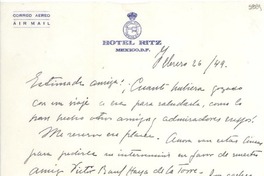 CORREO AEREO
AIR MAIL
HOTEL RITZ
MEXICO, D.F.
Febrero 26/49.
Estimada amiga: ¡Cuánto hubiera gozado
con un viaje a esa para saludarla, como lo
han hecho otros amigos y admiradores suyos!
Me reservo ese placer. Ahora van estas líneas
para pedirle su intervención en favor de nuestro
amigo Victor Raul Haya de la Torre.